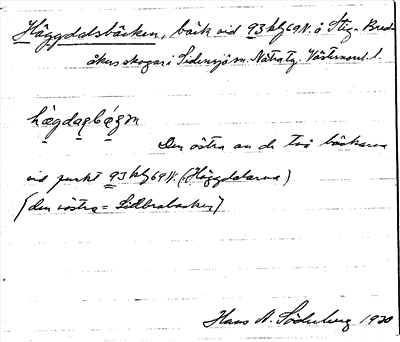 Häggdalsbäcken, bäck vid 93 kf 69 N. å Stig-Bred-
åkers skogar i Sidensjö sn. Nätra tg. Västernorrl. l.
Den östra av de två bäckarna
vid punkt 93 kf 69 N. (Häggdalarna)
(den västra = Lidbrobäcken)
Hans A. Söderberg 1930